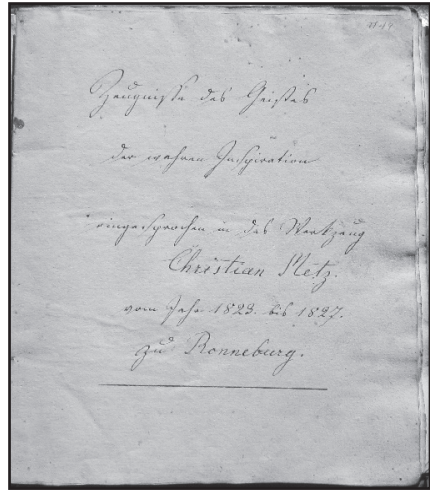 Zeugnisse des Geistes
der wahren Inspiration
eingesprochen in das Werkzeug
Christian Metz.
vom Jahr 1823. bis 1827.
zu Ronneburg.